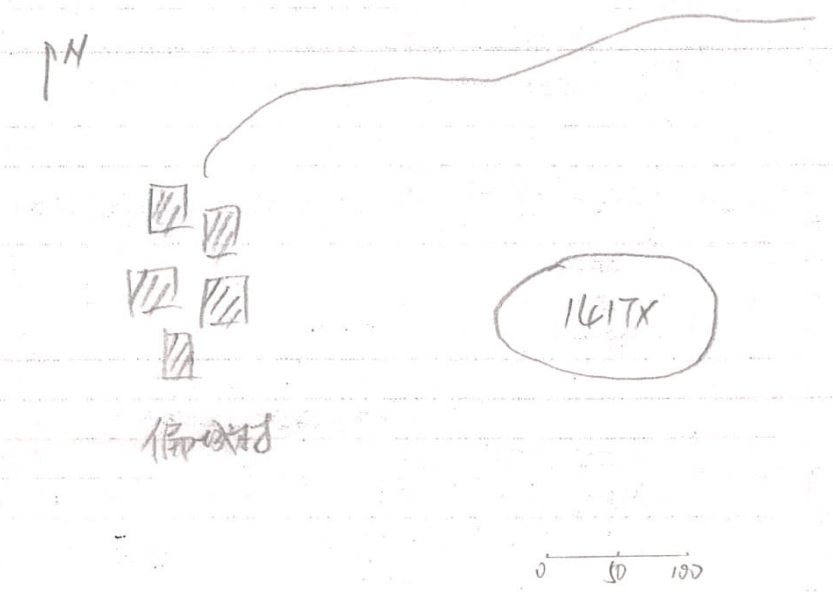 N
1417X
偏城村
0 50 100